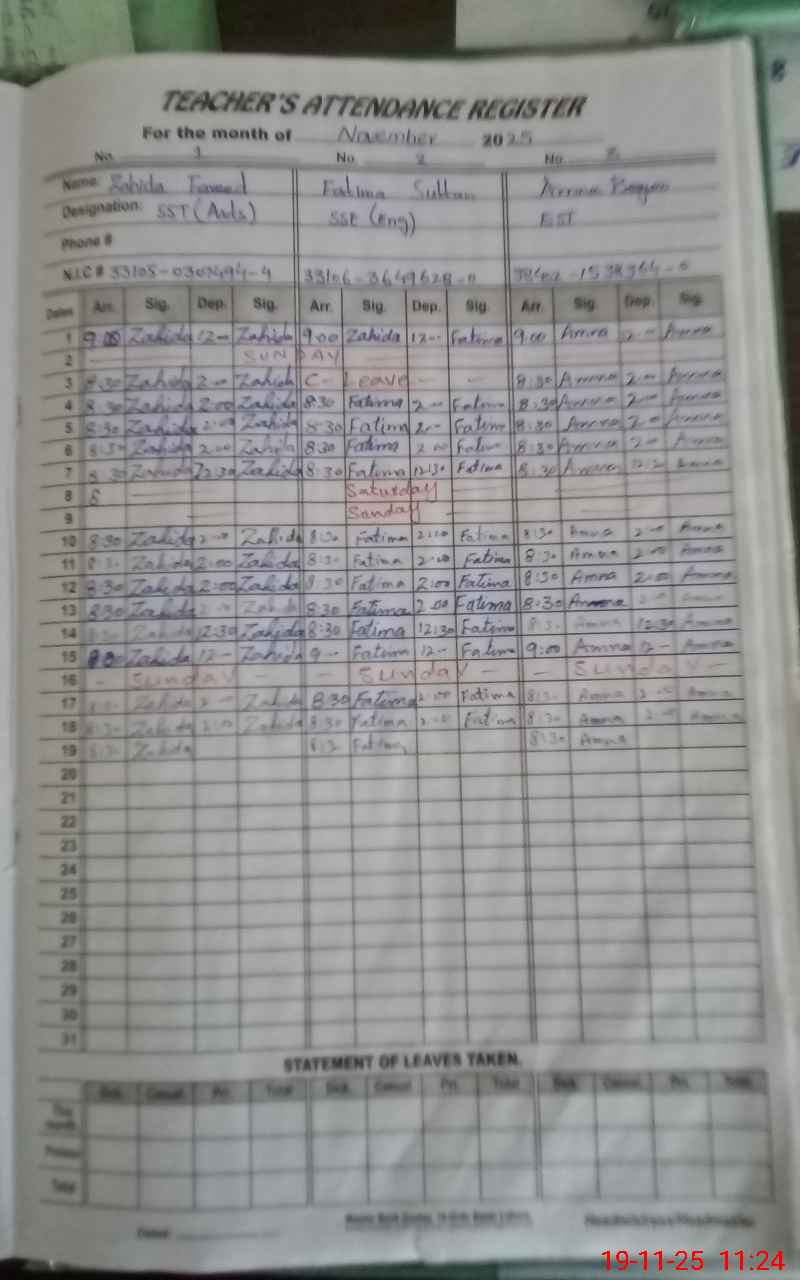 TEACHER'S ATTENDANCE REGISTER
For the month of November 2025
No. 1 No. 2 No.
Name: Zahida Fatima Sultan Amna
Designation: SST (Arts) SSE (Eng) EST
Phone #
N.I.C #
Dates Arr. Sig. Dep. Sig. Arr. Sig. Dep. Sig. Arr. Sig. Dep. Sig.
1 9:00 Zahida 12-- Zahida 9:00 Zahida 12-- Fatima 9:00 Amna Amna
2 SUNDAY
3 8:30 Zahida 2-00 Zahida C- Leave - - 8:30 Amna 2-00 Amna
4 8:30 Zahida 2:00 Zahida 8:30 Fatima 2-00 Fatima 8:30 Amna 2-00 Amna
5 8:30 Zahida 2:00 Zahida 8:30 Fatima 2-- Fatima 8:30 Amna 2-00 Amna
6 8:30 Zahida 2:00 Zahida 8:30 Fatima 2:00 Fatima 8:30 Amna 2-00 Amna
7 8:30 Zahida 12:30 Zahida 8:30 Fatima 12:30 Fatima 8:30 Amna Amna
8 S Saturday
9 Sunday
10 8:30 Zahida 2-00 Zahida 8:30 Fatima 2:00 Fatima 8:30 Amna 2-00 Amna
11 8:30 Zahida 2:00 Zahida 8:30 Fatima 2-00 Fatima 8:30 Amna 2-00 Amna
12 8:30 Zahida 2:00 Zahida 8:30 Fatima 2:00 Fatima 8:30 Amna 2:00 Amna
13 8:30 Zahida 2-00 Zahida 8:30 Fatima 2:00 Fatima 8:30 Amna 2-00 Amna
14 8:30 Zahida 12:30 Zahida 8:30 Fatima 12:30 Fatima 8:30 Amna 12:30 Amna
15 Zahida 12-- Zahida 9-- Fatima 12-- Fatima 9:00 Amna 12-- Amna
16 - Sunday - - Sunday - - Sunday -
17 8:30 Zahida 2-00 Zahida 8:30 Fatima 2:00 Fatima 8:30 Amna 2-00 Amna
18 8:30 Zahida 2:00 Zahida 8:30 Fatima 2-00 Fatima 8:30 Amna 2-00 Amna
19 8:30 Zahida 8:30 Fatima 8:30 Amna
20
21
22
23
24
25
26
27
28
29
30
31
STATEMENT OF LEAVES TAKEN.
Sick. Casual. Pri. Total Sick. Casual Pri. Total Sick. Casual Pri. Total
This month
Previous
Total
Dated
19-11-25 11:24